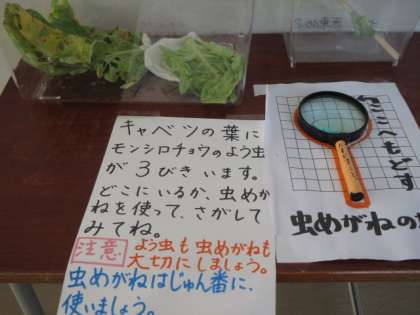 キャベツの葉に
モンシロチョウのよう虫
が3びきいます。
どこにいるか、虫めが
ねを使って、さがして
みてね。
注意 よう虫も虫めがねも
大切にしましょう。
虫めがねはじゅん番に、
使いましょう。
ここへもどす
虫めがねの